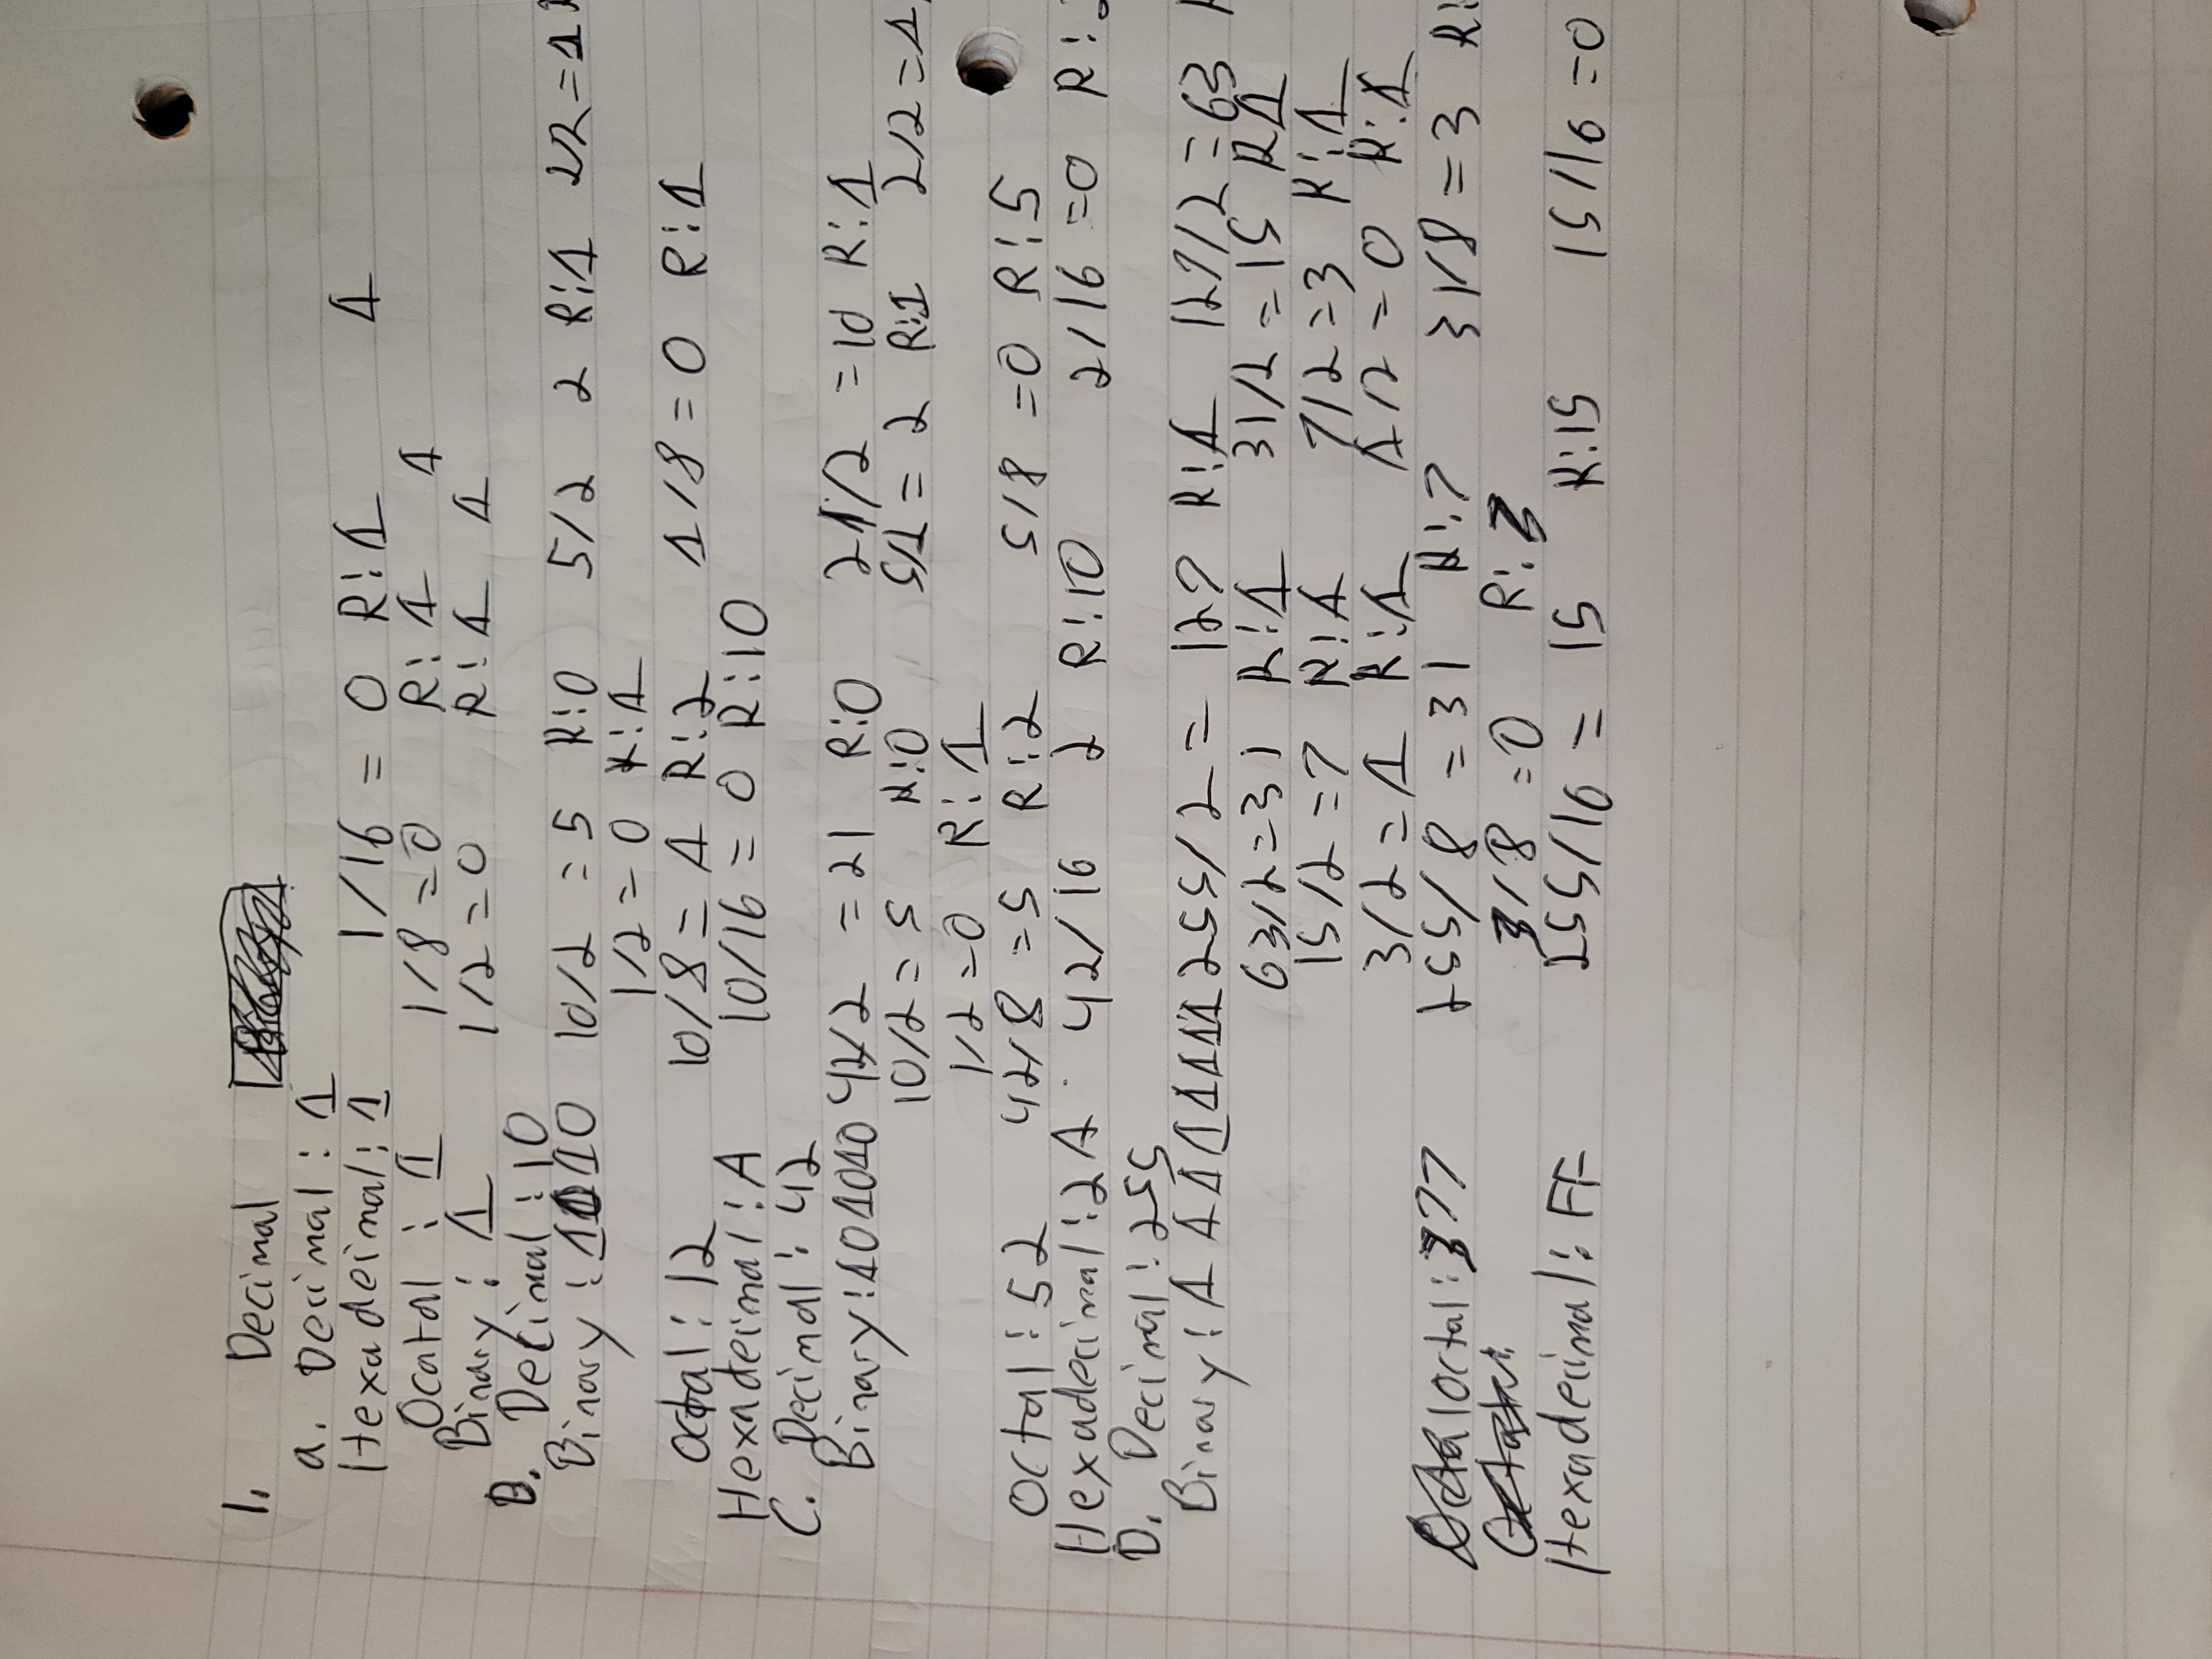 1. Decimal
a. Decimal: 1
Hexadeimal: 1 1/16 = 0 R:1 1
Ocatal : 1 1/8 = 0 R: 1 1
Binary: 1 1/2 = 0 R: 1 1
B. Decimal: 10
Binary: 1010 10/2 = 5 R:0 5/2 2 R:1 2/2=1 R
1/2 = 0 R:1
octal: 12 10/8 = 1 R:2 1/8 = 0 R:1
Hexadeimal: A 10/16 = 0 R:10
C. Decimal: 42
Binary: 101010 42/2 = 21 R:0 21/2 = 10 R:1
10/2 = 5 R:0 5/2 = 2 R:1 2/2 = 1
1/2 = 0 R: 1
Octal: 52 42/8 = 5 R:2 5/8 = 0 R:5
Hexadecimal: 2A 42/16 2 R:10 2/16 = 0 R:2
D. Decimal: 255
Binary: 11111111 255/2 = 127 R:1 127/2 = 63 R
63/2 = 31 R:1 31/2 = 15 R1
15/2 = 7 R:1 7/2 = 3 R:1
3/2 = 1 R:1 1/2 = 0 R:1
Octal: 377 255/8 = 31 R:7 31/8 = 3 R:
3/8 = 0 R:3
Hexadecimal: FF 255/16 = 15 R:15 15/16 = 0